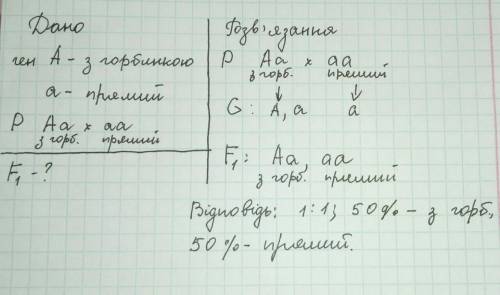 Дано
ген А - з горбинкою
а - прямий
Р Аа × аа
з горб. прямий
F₁ - ?
Розв'язання
Р Аа × аа
з горб. прямий
G: А, а а
F₁: Аа, аа
з горб. прямий
Відповідь: 1:1; 50% - з горб.,
50% - прямий.